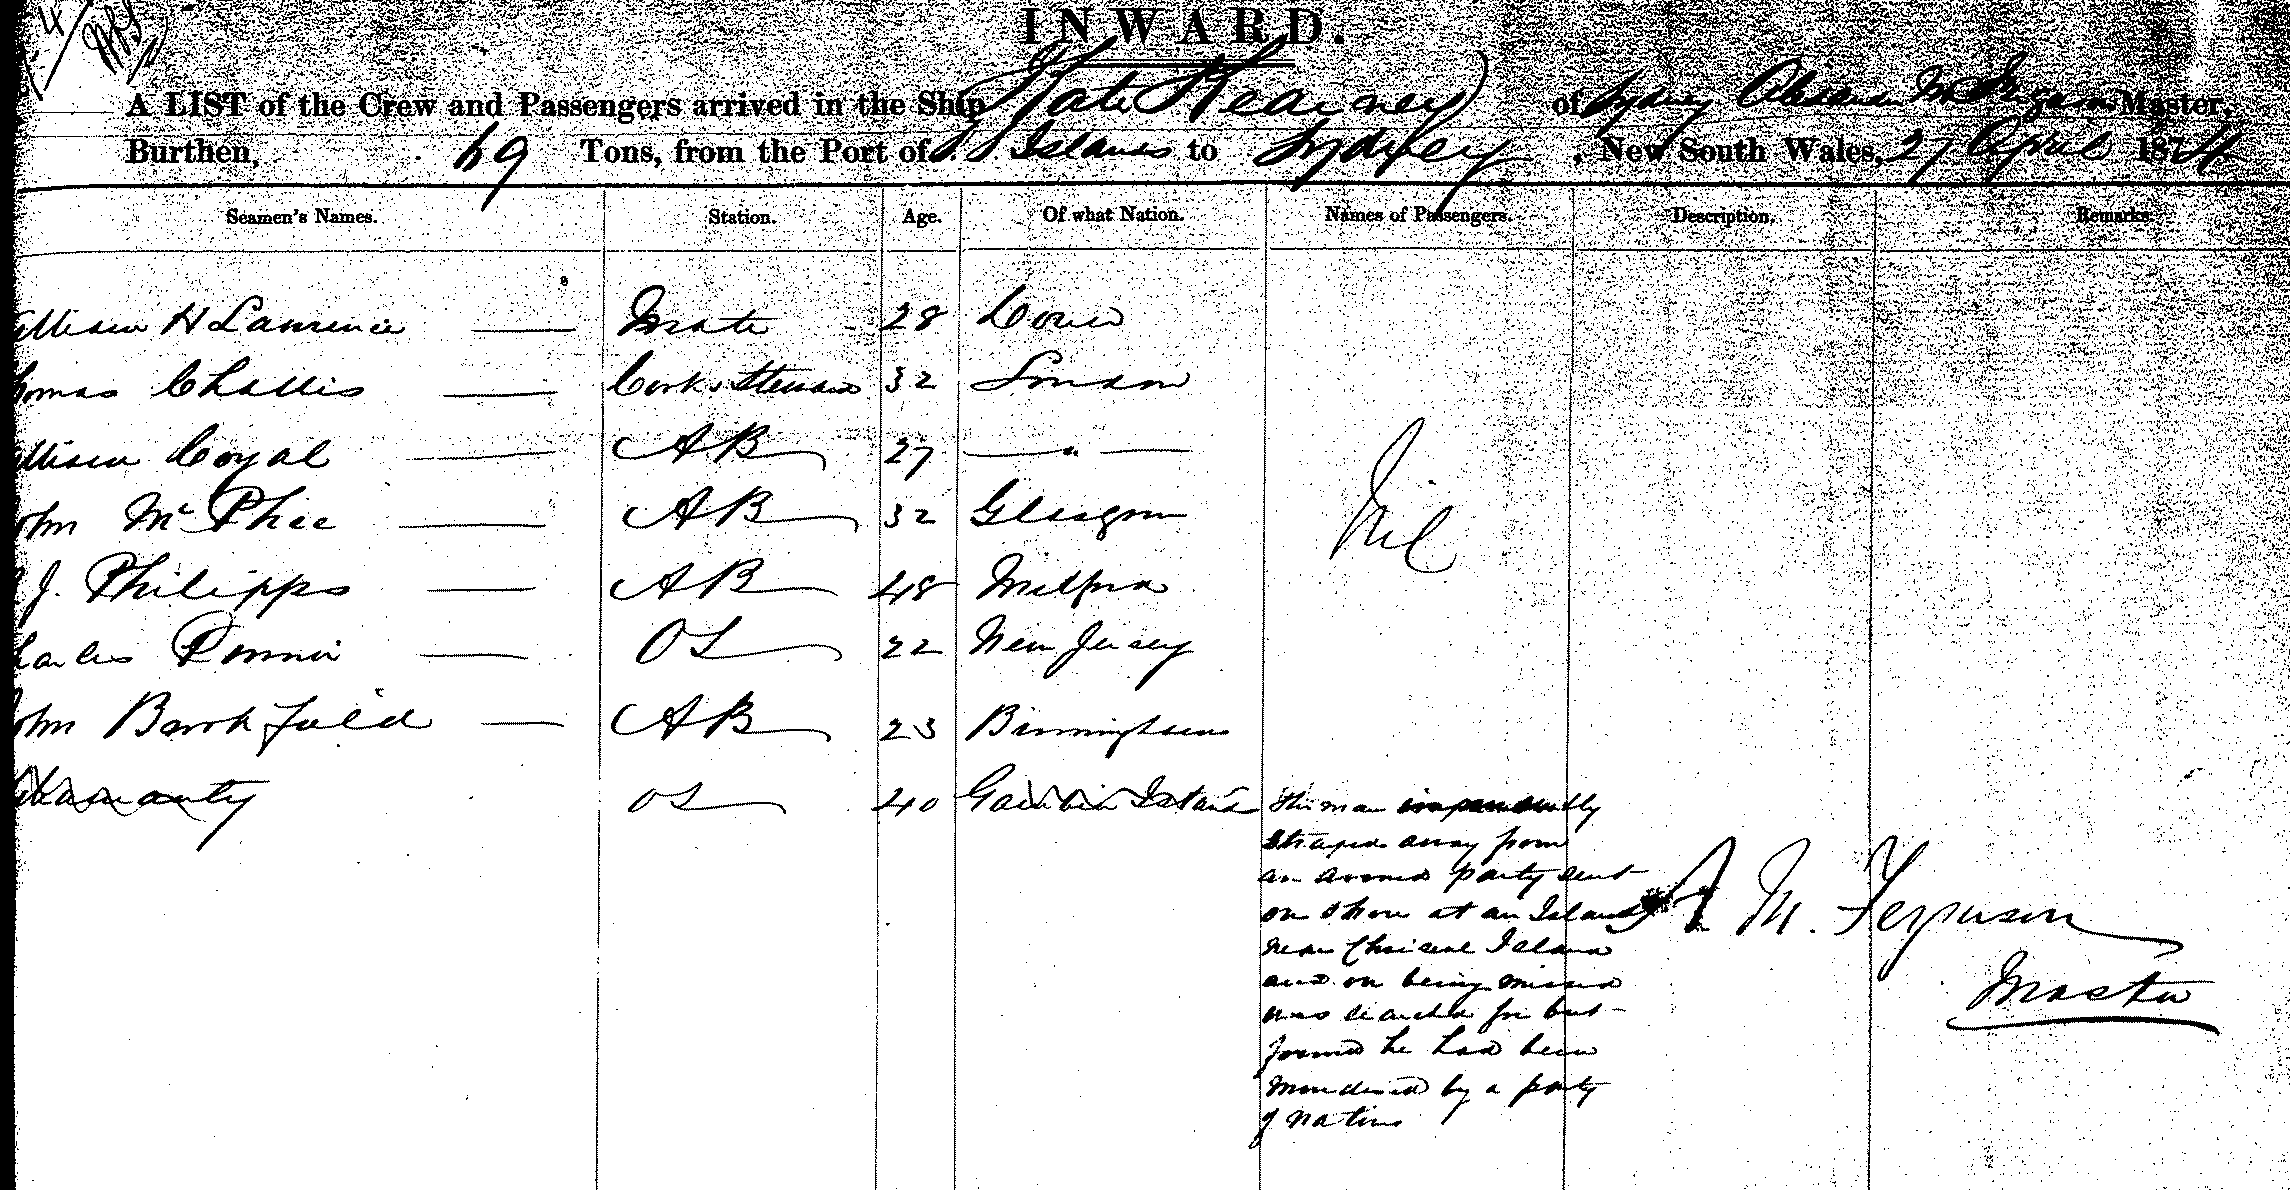 INWARD.
A LIST of the Crew and Passengers arrived in the Ship Kate Kearney of Sydney Master,
Burthen, 69 Tons, from the Port of S. S. Islands to Sydney, New South Wales, 27 April 1874
Seamen's Names. Station. Age. Of what Nation. Names of Passengers. Description. Remarks.
William H Lawrence Mate 28
homas Challis Cook & Steward 32 London
William Coyal AB 27 "
ohn McPhee AB 32 Glasgow
Nil
J. Philipps AB 48 Milford
harles OS 22 New Jersey
ohn Brookfield AB 23 Birmingham
OS 40 Island This man
away from
an armed party sent
on shore at an Island
near Island
A M. Ferguson
and on being missed
Master
was searched for but
found he had been
murdered by a party
of natives